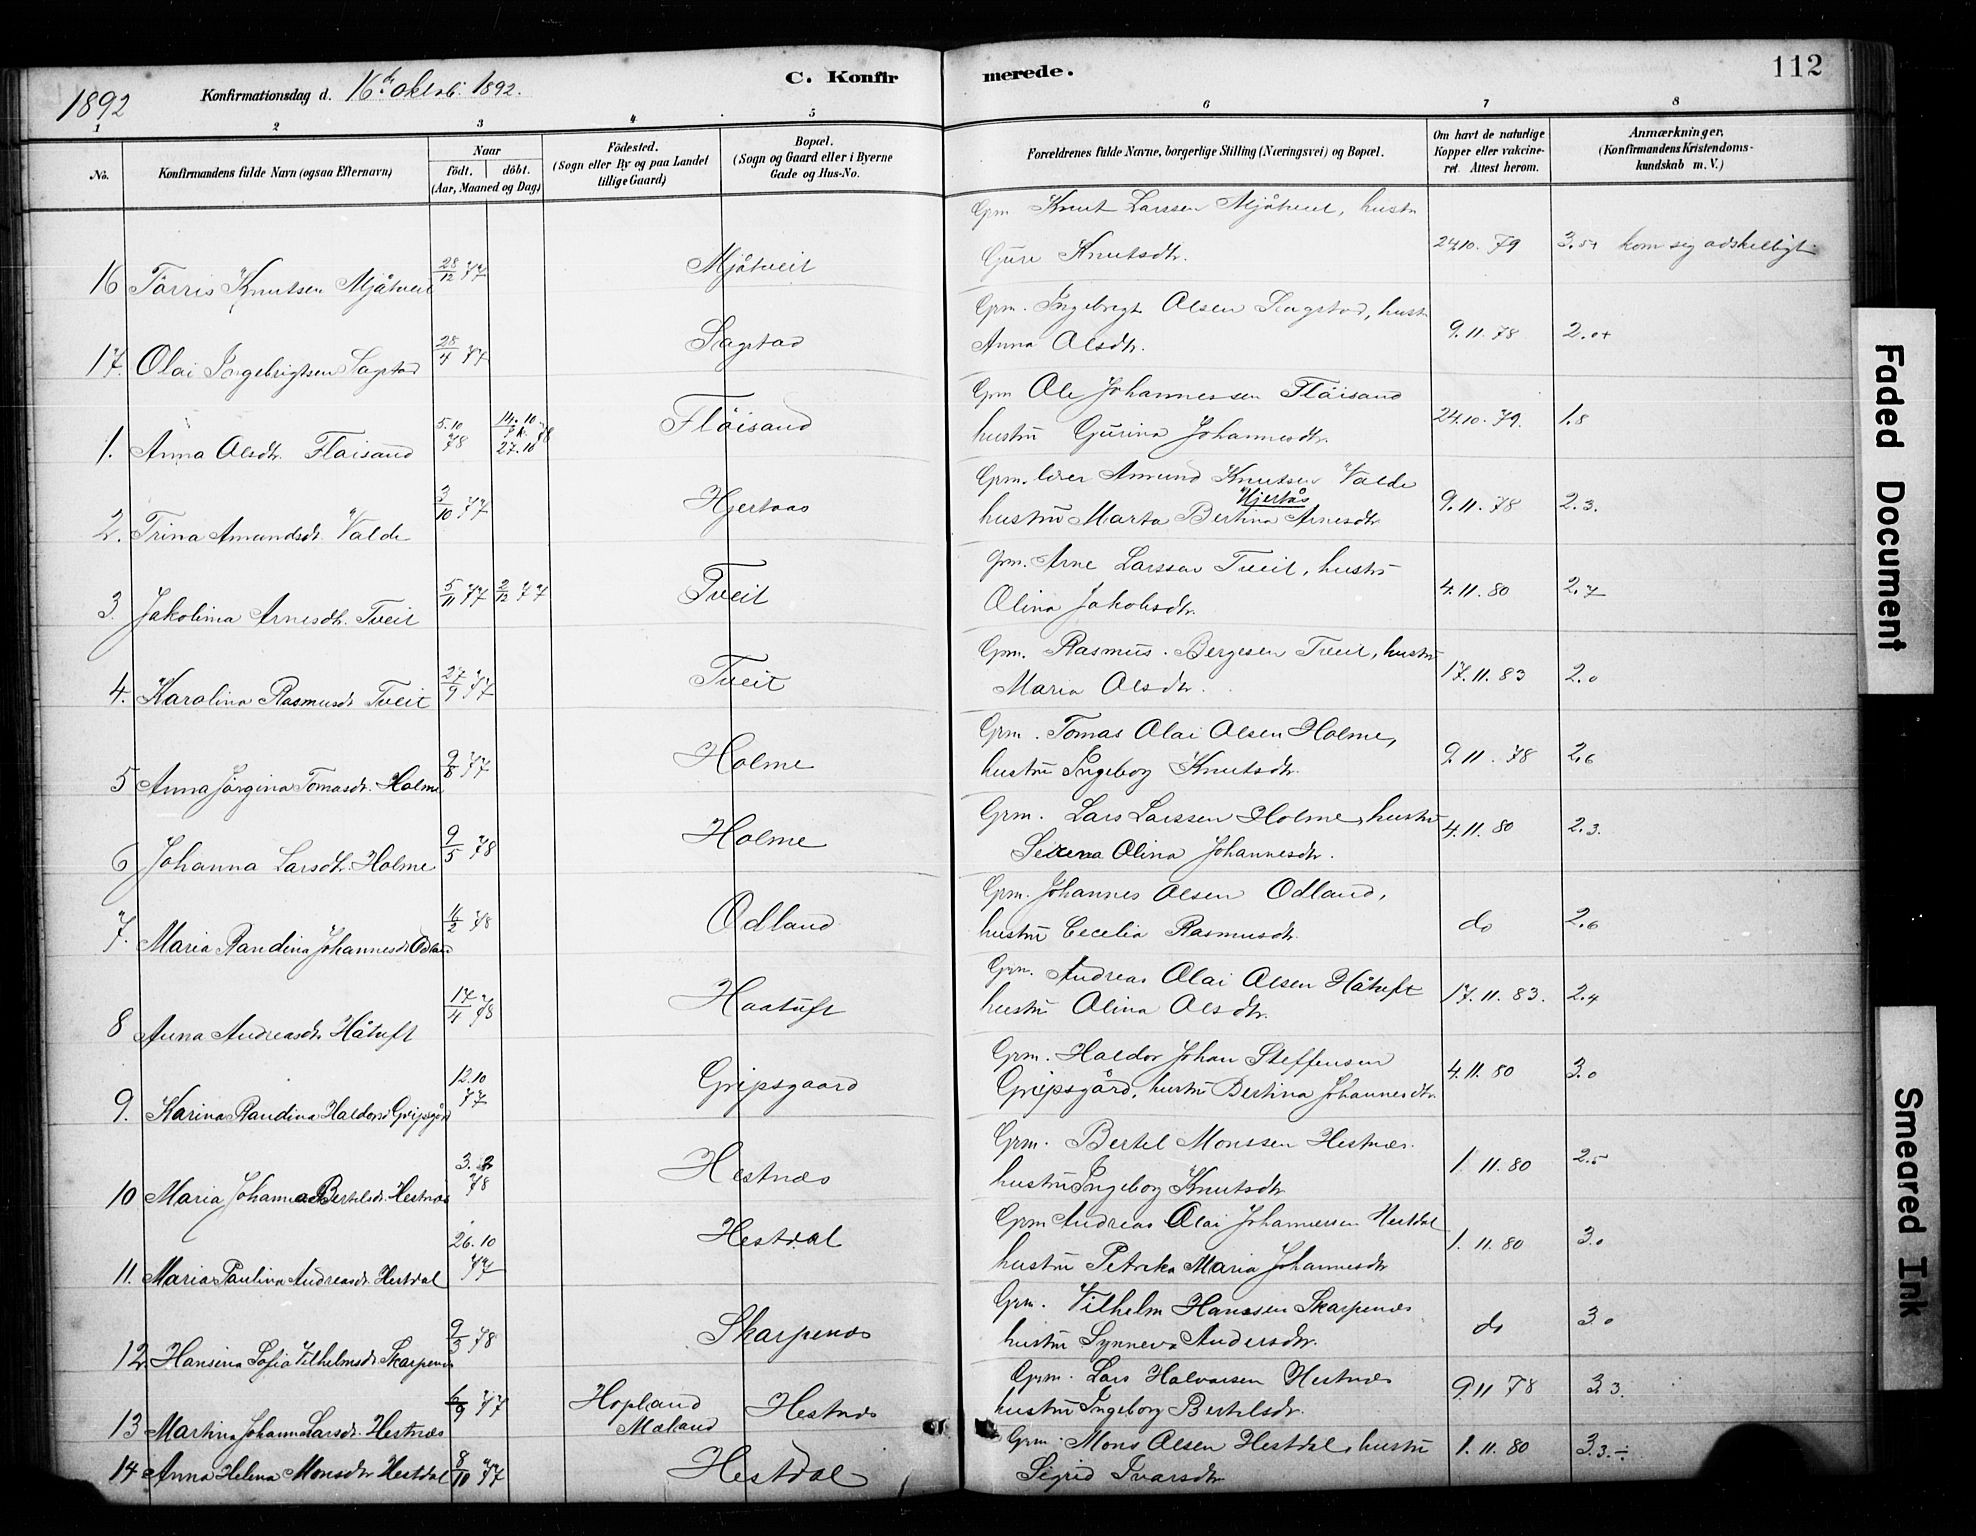 112
1892
Konfirmationsdag d. 16de oktob. 1892.
C. Konfirmerede.
1 2 3 4 5 6 7 8
No.
Konfirmandens fulde Navn (ogsaa Efternavn)
Naar
födt. döbt.
(Aar, Maaned og Dag)
Födested.
(Sogn eller By og paa Landet
tillige Gaard)
Bopæl.
(Sogn og Gaard eller i Byerne
Gade og Hus-No.
Forældrenes fulde Navne, borgerlige Stilling (Næringsvei) og Bopæl.
Om havt de naturlige
Kopper eller vakcine-
ret. Attest herom.
Anmærkninger,
(Konfirmandens Kristendoms-
kundskab m. V.)
16 Törris Knutsen Mjåtveit 28/12 77 Mjåtveit
Grm Knut Larssen Mjåtveit, hustr
Guri Knutsdtr. 24.10. 79 3.5+ kom seg adskelligt
17. Olai Ingebrigtsen Sagstad 28/4 77 Sagstad
Grm. Ingebrigt Olsen Sagstad, hustr
Anna Olsdtr. 9.11. 78 2.0+
1. Anna Olsdtr. Flöisand 5.10 78 27.10 Flöisand
Grm Ole Johannessen Flöisand
hustru Gurina Johannesdtr. 24.10. 79. 1.8
2. Trina Amundsdtr. Valde 3/10 77 Hjertaas
Grm. Amund Knutsen Valde
Hjertås
hustru Marta Bertina Arnesdtr 9.11. 78 2.3.
3. Jakolina Arnesdtr. Tveit 5/11 77 2/12 77 Tveit
Grm. Arne Larssen Tveit, hustru
Olina Jakobsdtr. 4.11. 80 2.7
4. Karolina Rasmusdtr Tveit 27/9 77 Tveit
Grm. Rasmus Bergesen Tveit, hustru
Maria Olsdtr. 17.11. 83 2.0
5 Anna Jörgina Tomasdtr. Holme 9/8 77 Holme
Grm. Tomas Olai Olsen Holme,
hustru Ingeborg Knutsdtr. 9.11. 78 2.6
6 Johanna Larsdtr. Holme 9/5 78 Holme
Grm. Lars Larssen Holme, hustru
Serena Olina Johannesdtr. 4.11. 80 2.3.
7. Maria Randina Johannesdtr Odland 11/2 78 Odland
Grm. Johannes Olsen Odland,
hustru Cecelia Rasmusdtr. do 2.6
8 Anna Andreasdtr. Håtuft 17/4 78 Haatuft
Grm. Andreas Olai Olsen Håtuft
hustru Olina Olsdtr. 17.11. 83. 2.4
9. Karina Randina Haldorsd Gripsgård 12.10 77 Gripsgaard
Grm. Haldor Johan Steffensen
Gripsgård, hustru Bertina Johannesdtr. 4.11. 80 3.0
10 Maria Johanna Bertelsdtr. Hestnæs 3.2 78 Hestnæs
Grm. Bertel Monssen Hestnæs.
hustru Ingeborg Knutsdtr 1. 11. 80 2.5
11. Maria Paulina Andreasdtr. Hestdal 26.10 77 Hestdal
Grm Andreas Olai Johannessen Hestdal
hustru Petrika Maria Johannesdtr 1. 11. 80 3.0
12. Hansina Sofia Vilhelmsdtr Skarpenæs 9/3 78 Skarpenæs
Grm. Vilhelm Hanssen Skarpenæs
hustru Synneva Andersdtr. do 3.0
13 Martina Johanna Larsdtr. Hestnæs 6/9 77 Hopland
Mæland Hestnæs
Grm. Lars Halvorsen Hestnæs
hustru Ingeborg Bertelsdtr. 9.11 78 3.3.
14 Anna Helena Monsdtr Hestdal 8/10 77 Hestdal
Grm. Mons Olsen Hestdal, hustru
Sigrid Ivarsdtr 1. 11. 80 3.3.÷
Faded Document
Smeared Ink